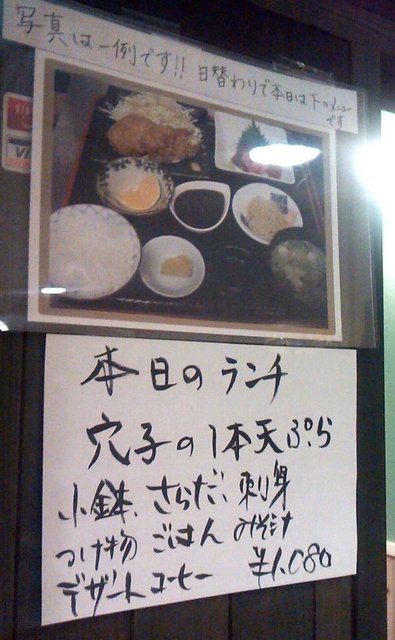 写真は一例です!! 日替わりで本日は下のメニュー
です
VISA
本日のランチ
穴子の1本天ぷら
小鉢、さらだ、刺身
つけ物 ごはん みそ汁
デザート コーヒー ¥1,080